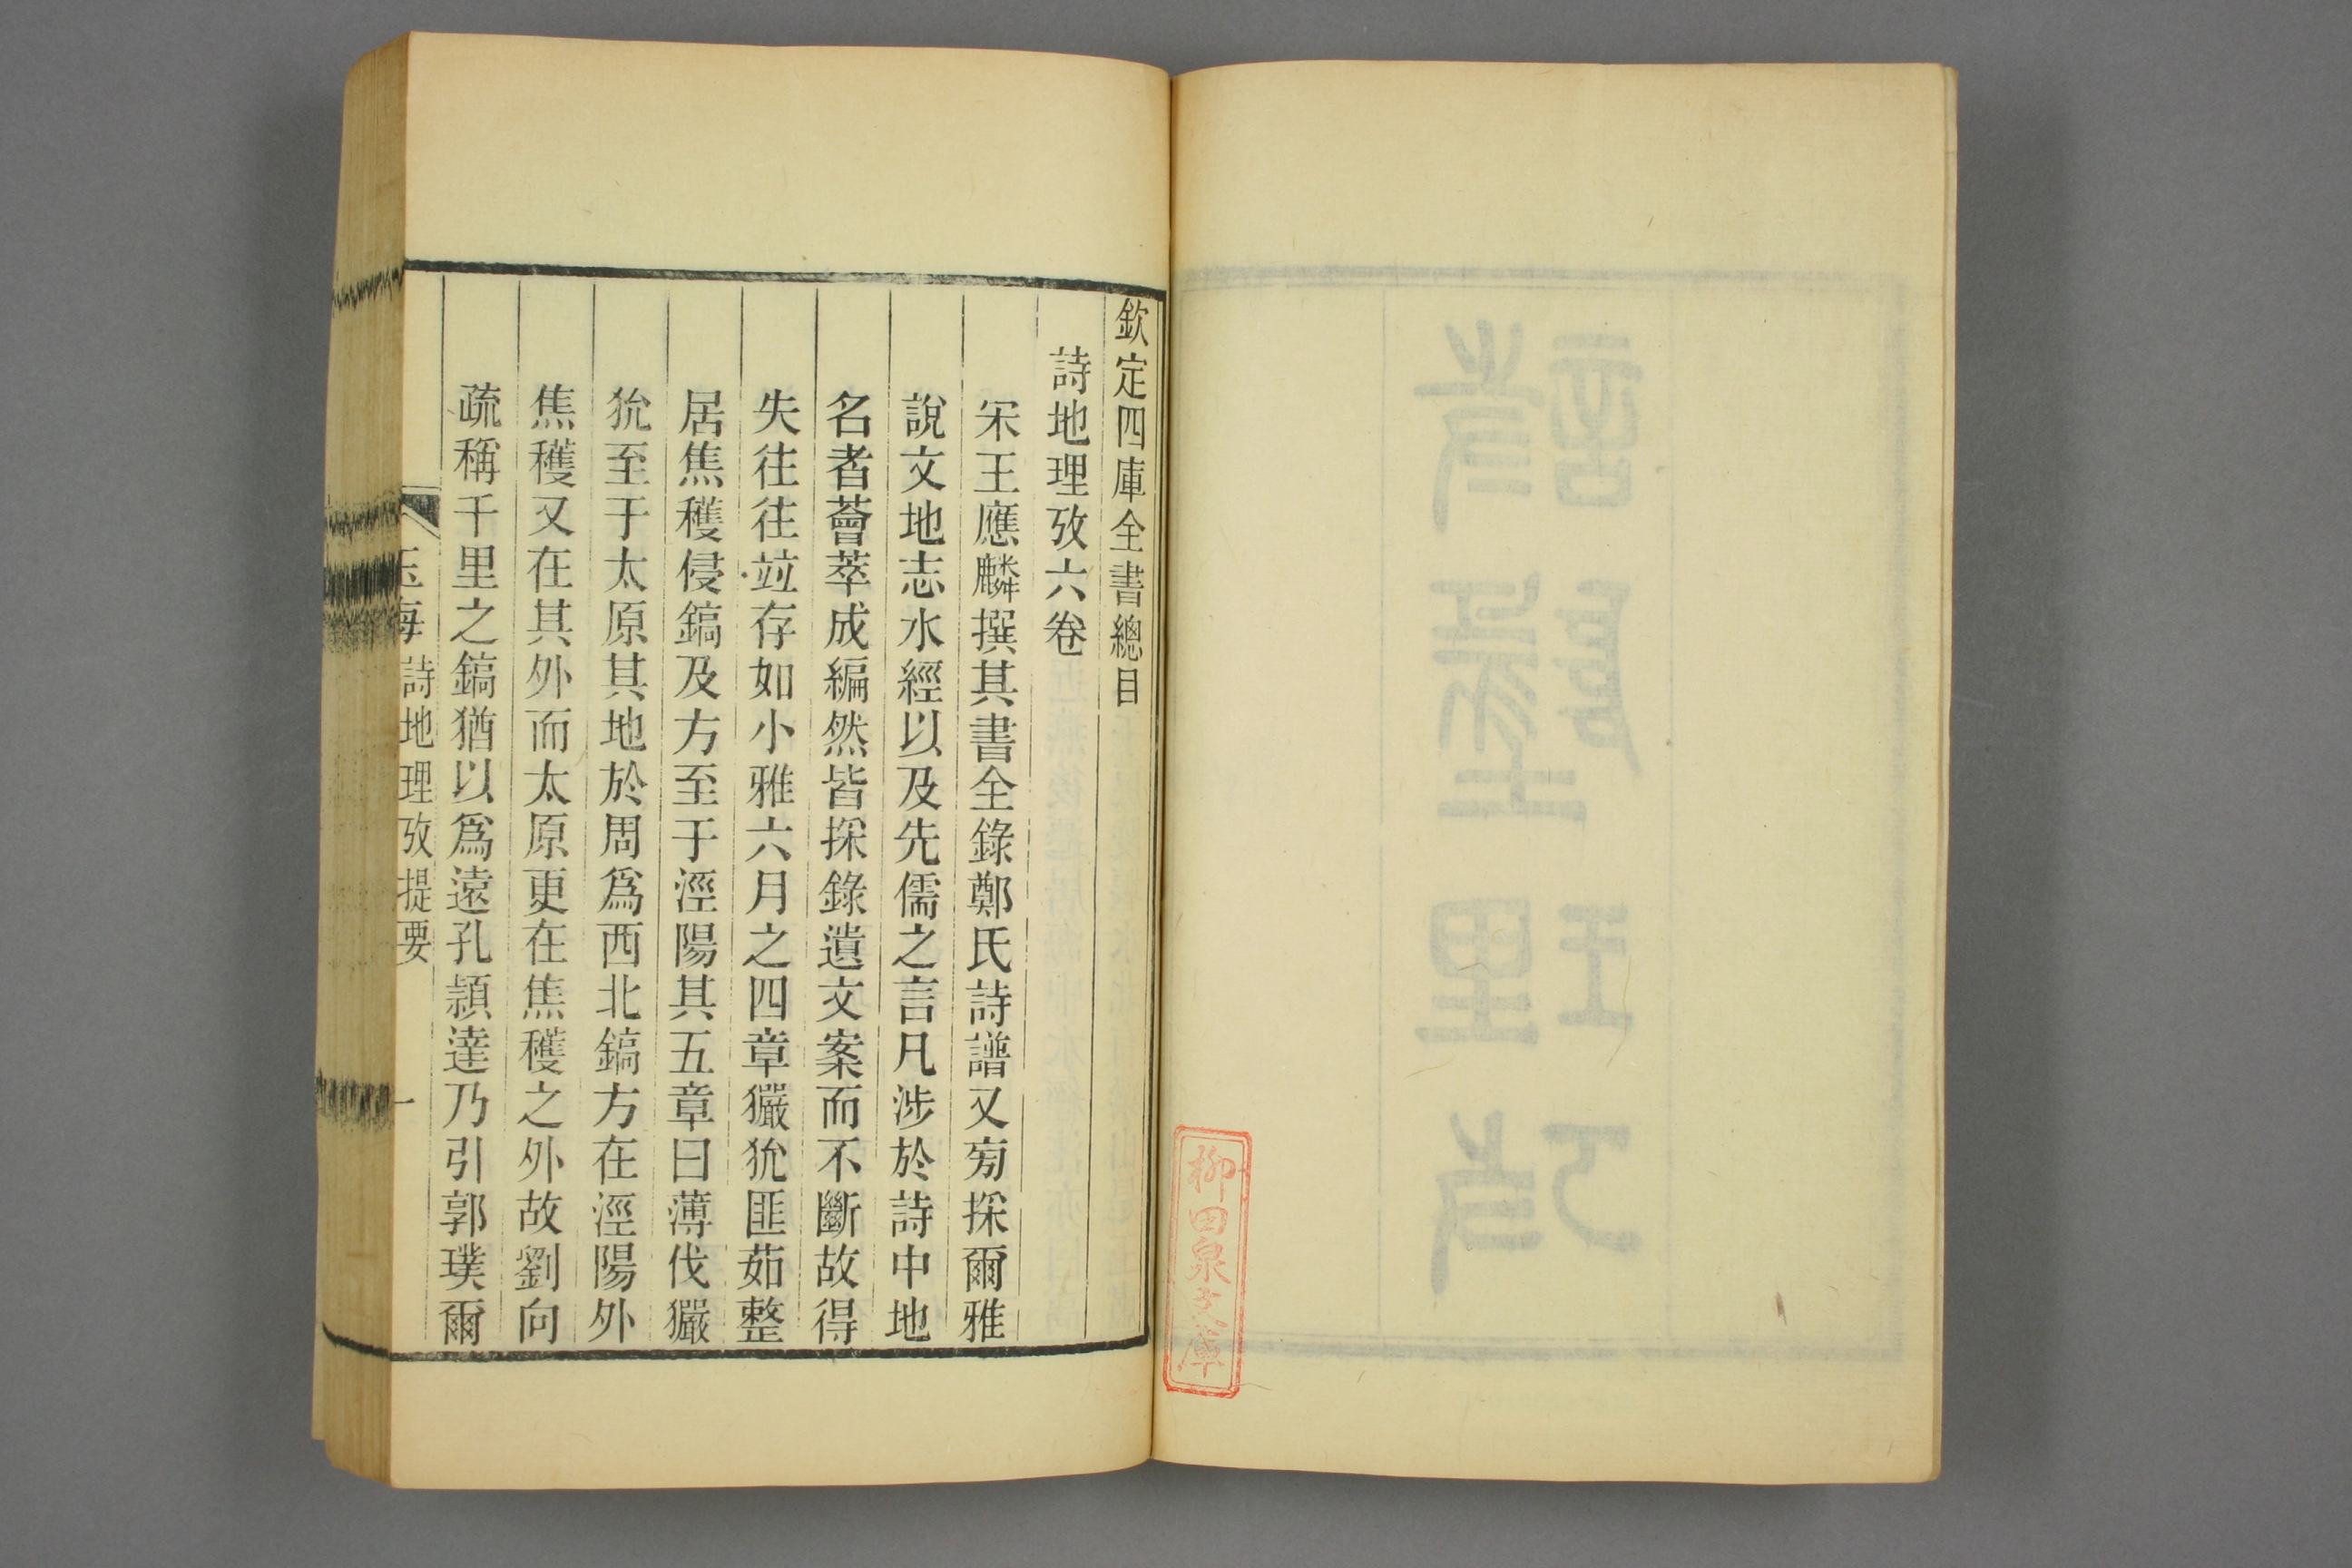 欽定四庫全書總目
詩地理攷六卷
宋王應麟撰其書全錄鄭氏詩譜又旁採爾雅
說文地志水經以及先儒之言凡涉於詩中地
名者薈萃成編然皆採錄遺文案而不斷故得
失往往竝存如小雅六月之四章玁狁匪茹整
居焦穫侵鎬及方至于涇陽其五章曰薄伐玁
狁至于太原其地於周爲西北鎬方在涇陽外
焦穫又在其外而太原更在焦穫之外故劉向
疏稱千里之鎬猶以爲遠孔頴達乃引郭璞爾
玉海 詩地理攷提要 一
柳田泉文庫